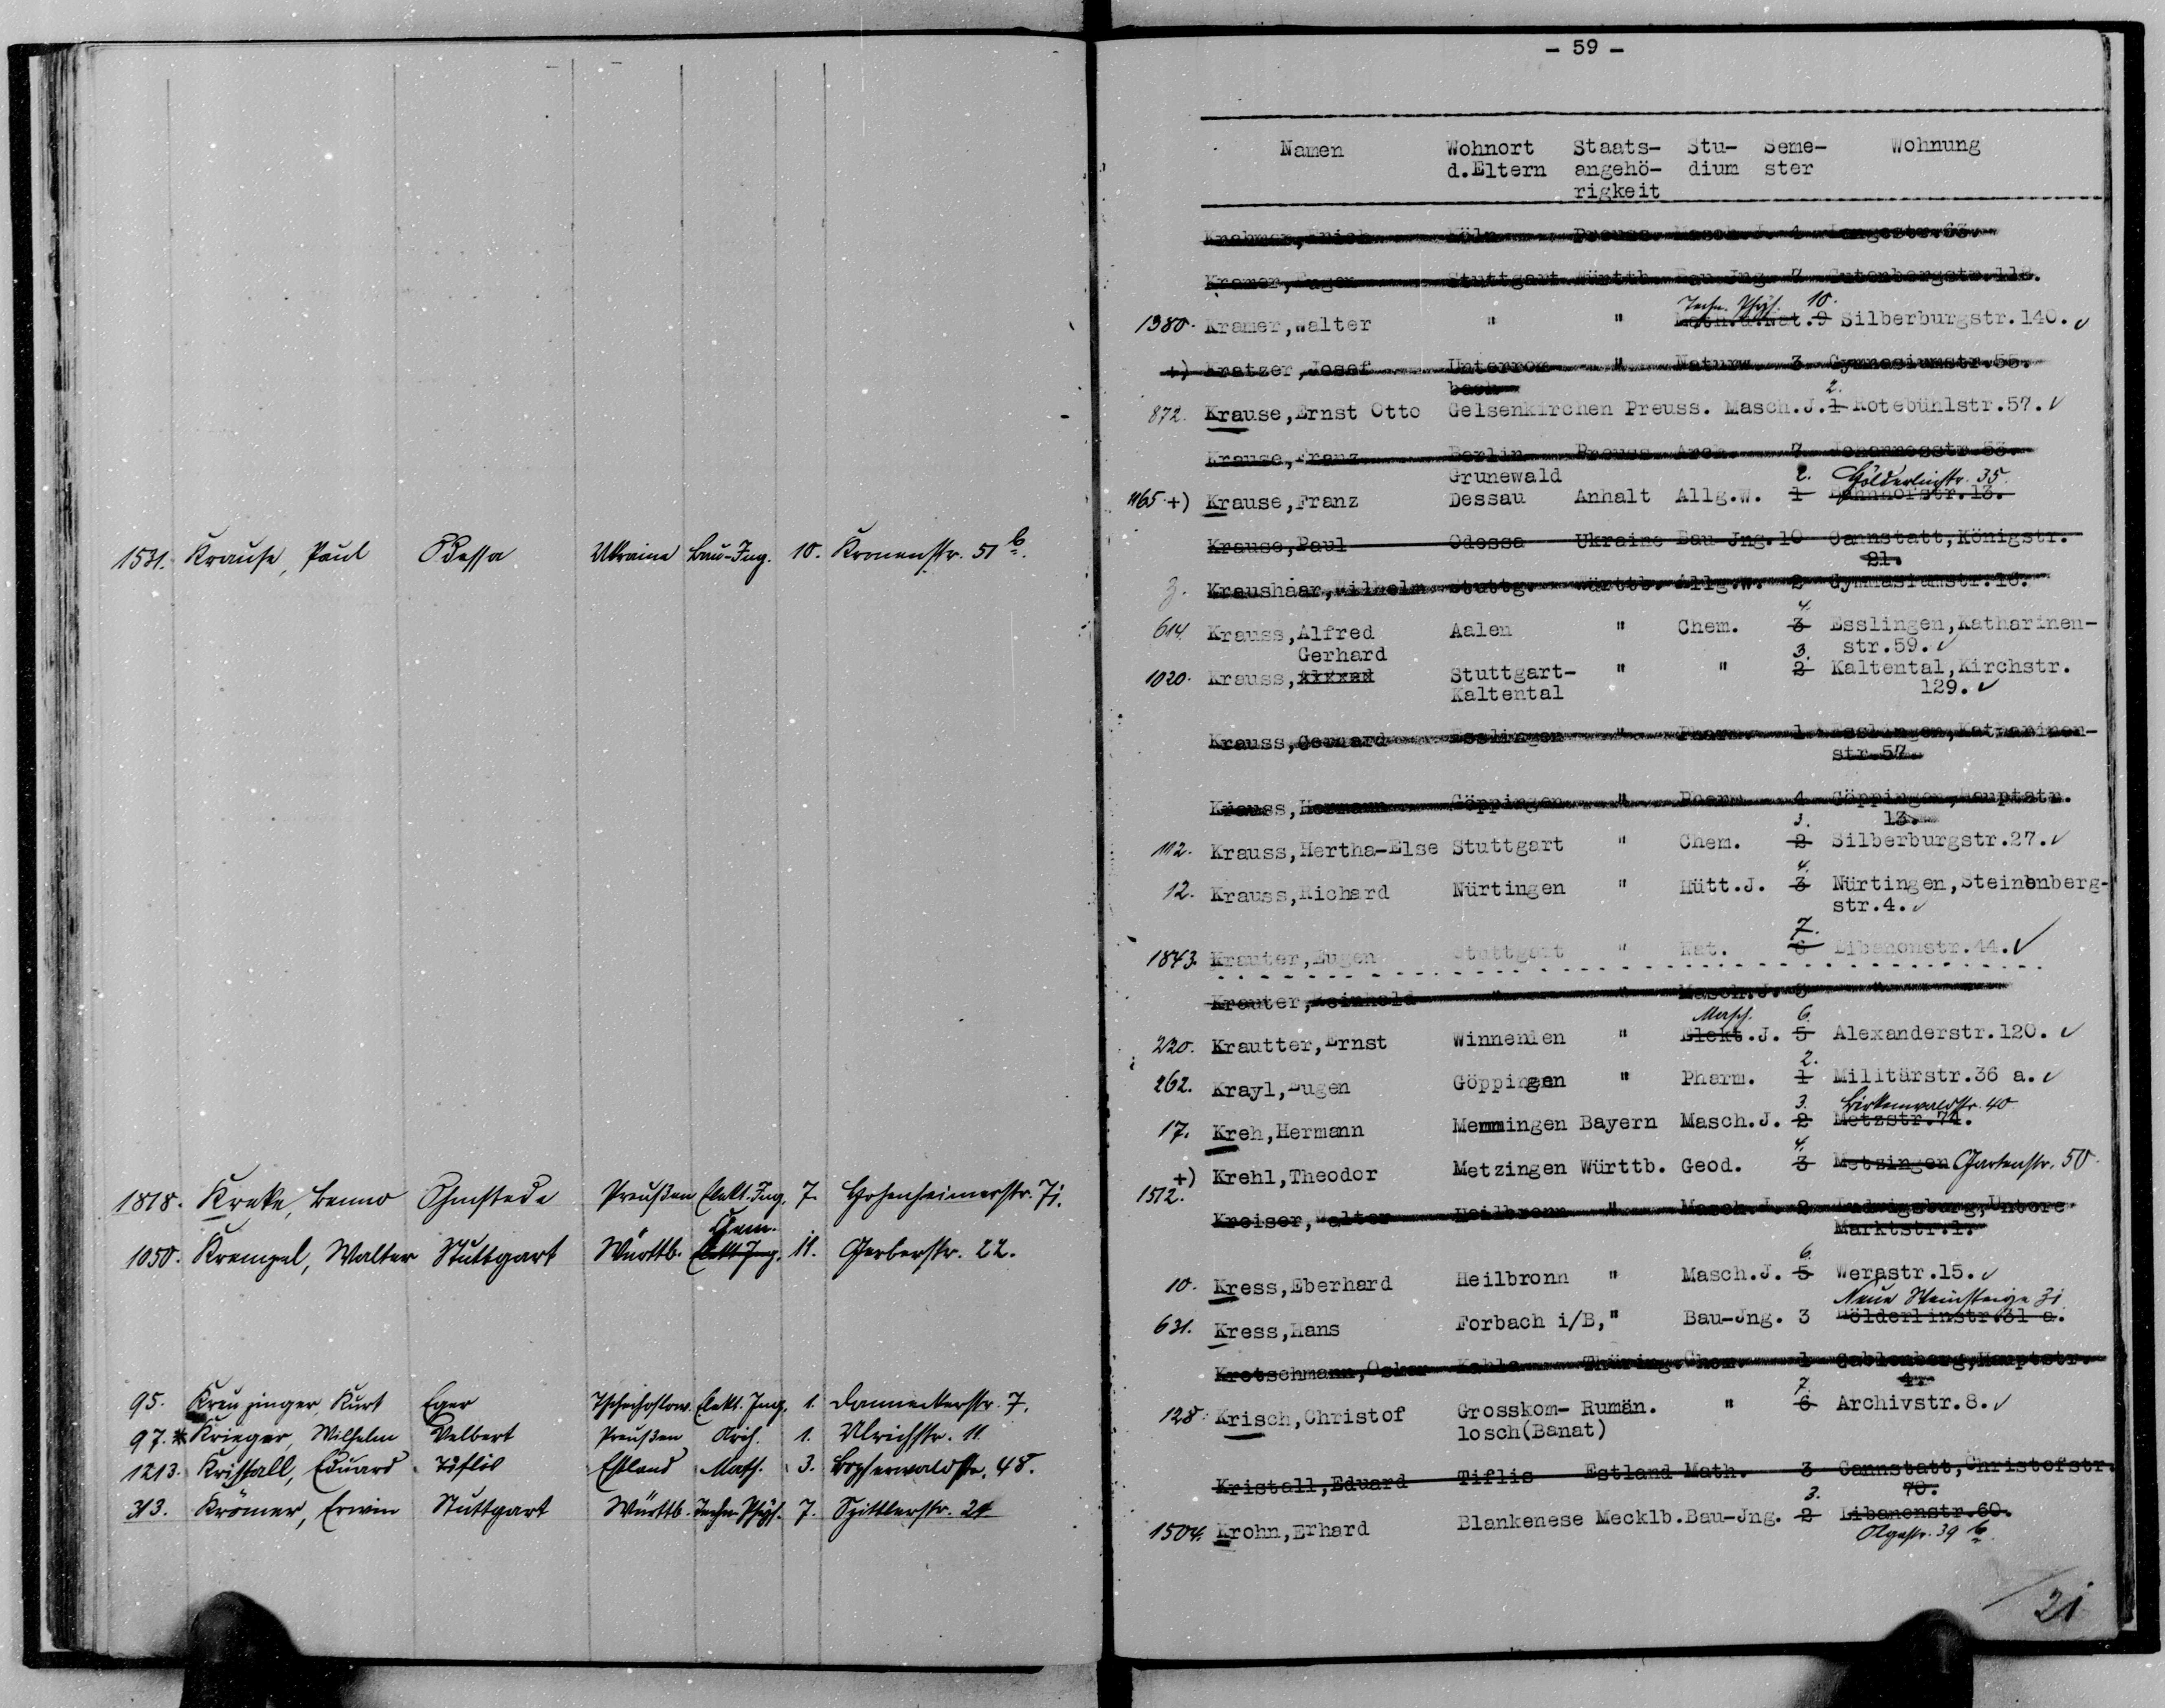 1531. Krause, Paul Odessa Ukraine Bau-Ing. 10. Kronenstr. 51 b.
1818. Kreke, Benno Ohmstede Preußen Elekt. Ing. 7. Hohenheimerstr. 71.
Chem.
1050. Krempel, Walter Stuttgart Württb. Elekt. Ing. 11. Gerberstr. 22.
95. Kreuzinger, Kurt Eger Tschechoslow. Elekt. Ing. 1. Danneckerstr. 7.
97. * Krieger, Wilhelm Velbert Preußen Arch. 1. Ulrichstr. 11.
1213. Kristall, Eduard Tiflis Estland Math. 3. Bopserwaldstr. 48.
313. Krömer, Erwin Stuttgart Württb. Techn. Phys. 7. Spittlerstr. 24
- 59 -
Namen Wohnort Staats- Stu- Seme- Wohnung
d.Eltern angehö- dium ster
rigkeit
Köln Preuss. Masch.J. 4 Langestr.63.
Kramer,Eugen Stuttgart Württb. Bau-Jng. 7 Gutenbergstr.118.
Techn. Phys. 10.
1380. Kramer,Walter " " Math.u.Nat.9 Silberburgstr.140. ✓
+) Kratzer,Josef Unterrom- " Naturw. 3 Gymnasiumstr.55.
bach 2.
872. Krause,Ernst Otto Gelsenkirchen Preuss. Masch.J.1 Rotebühlstr.57. ✓
Krause,Franz Berlin Preuss. Arch. 7 Johannesstr.53.
Grunewald 2. Hölderlinstr. 35.
1165 +) Krause,Franz Dessau Anhalt Allg.W. 1 Bahnhofstr.13.
Krause,Paul Odessa Ukraine Bau-Jng.10 Cannstatt,Königstr.
21.
Kraushaar,Wilhelm Stuttg. Württb. Allg.W. 2 Gymnasiumstr.16.
4.
614. Krauss,Alfred Aalen " Chem. 3 Esslingen,Katharinen-
Gerhard 3. str.59. ✓
1020. Krauss, Alfred Stuttgart- " " 2 Kaltental,Kirchstr.
Kaltental 129. ✓
Krauss,Gerhard Esslingen " Pharm. 1 Esslingen,Katharinen-
str.57.
Krauss,Hermann Göppingen " Pharm. 4 Göppingen,Hauptstr.
3. 13.
112. Krauss,Hertha-Else Stuttgart " Chem. 2 Silberburgstr.27. ✓
4.
12. Krauss,Richard Nürtingen " Hütt.J. 3 Nürtingen,Steinenberg-
str.4. ✓
7.
1843. Krauter,Eugen Stuttgart " Nat. 6 Libanonstr.44. ✓
Krauter,Reinhold " " Masch.J. "
Masch. 6.
220. Krautter,Ernst Winnenden " Elekt.J. 5 Alexanderstr.120. ✓
2.
262. Krayl,Eugen Göppingen " Pharm. 1 Militärstr.36 a. ✓
3. Birkenwaldstr. 40
17. Kreh,Hermann Memmingen Bayern Masch.J. 2 Metzstr.74.
4.
+) Krehl,Theodor Metzingen Württb. Geod. 3 Metzingen Gartenstr. 50
1512.
Kreiser,Walter Heilbronn " Masch.J. 2 Ludwigsburg,Untere
Marktstr.1.
6.
10. Kress,Eberhard Heilbronn " Masch.J. 5 Werastr.15. ✓
Neue Weinsteige 31
631. Kress,Hans Forbach i/B," Bau-Jng. 3 Hölderlinstr.31 a.
Kretschmann,Oskar Kahla Thüring. Chem. 1 Gablenberg,Hauptstr.
7. 4.
128. Krisch,Christof Grosskom- Rumän. " 6 Archivstr.8. ✓
losch(Banat)
Kristall,Eduard Tiflis Estland Math. 3 Cannstatt,Christofstr.
3. 70.
1504. Krohn,Erhard Blankenese Mecklb.Bau-Jng. 2 Libanonstr.60.
Olgastr. 39 b
21